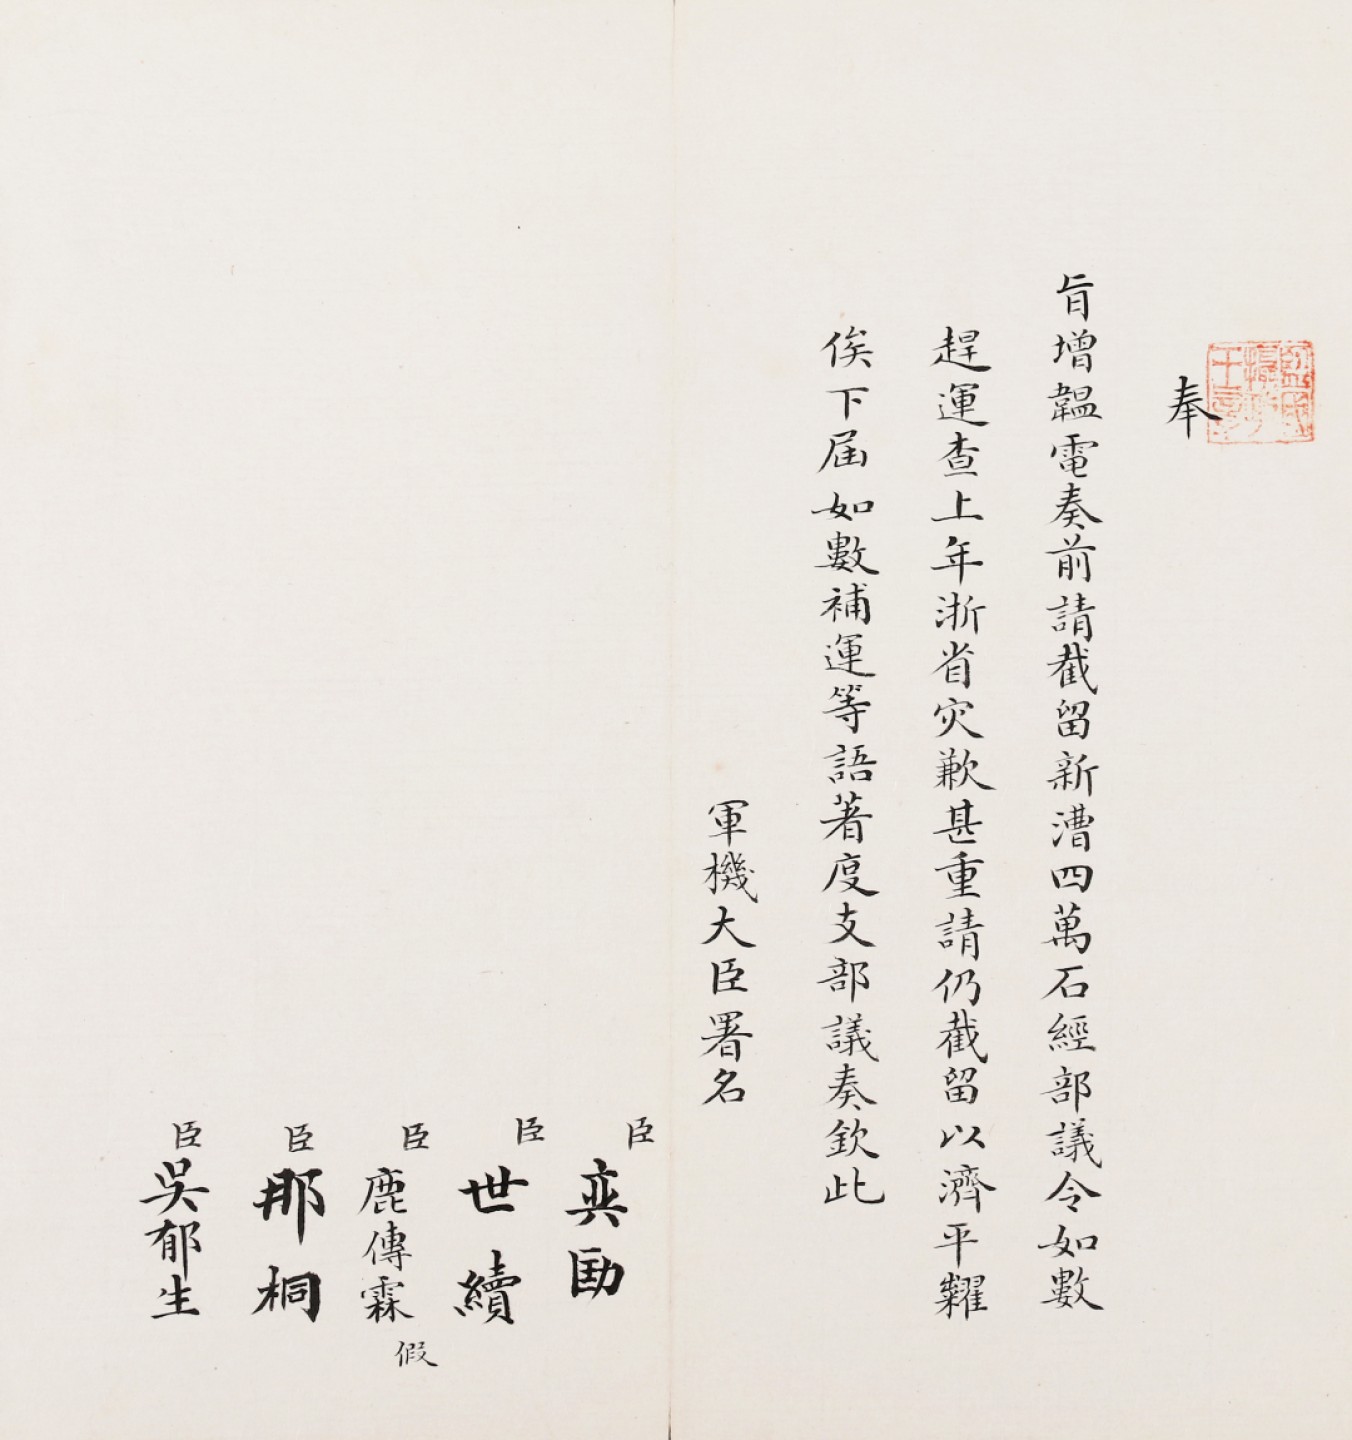 監國攝政王章
奉
旨增韞電奏前請截留新漕四萬石經部議令如數
趕運查上年浙省灾歉甚重請仍截留以濟平糶
俟下届如數補運等語著度支部議奏欽此
軍機大臣署名
臣奕劻
臣世續
臣鹿傳霖假
臣那桐
臣吳郁生